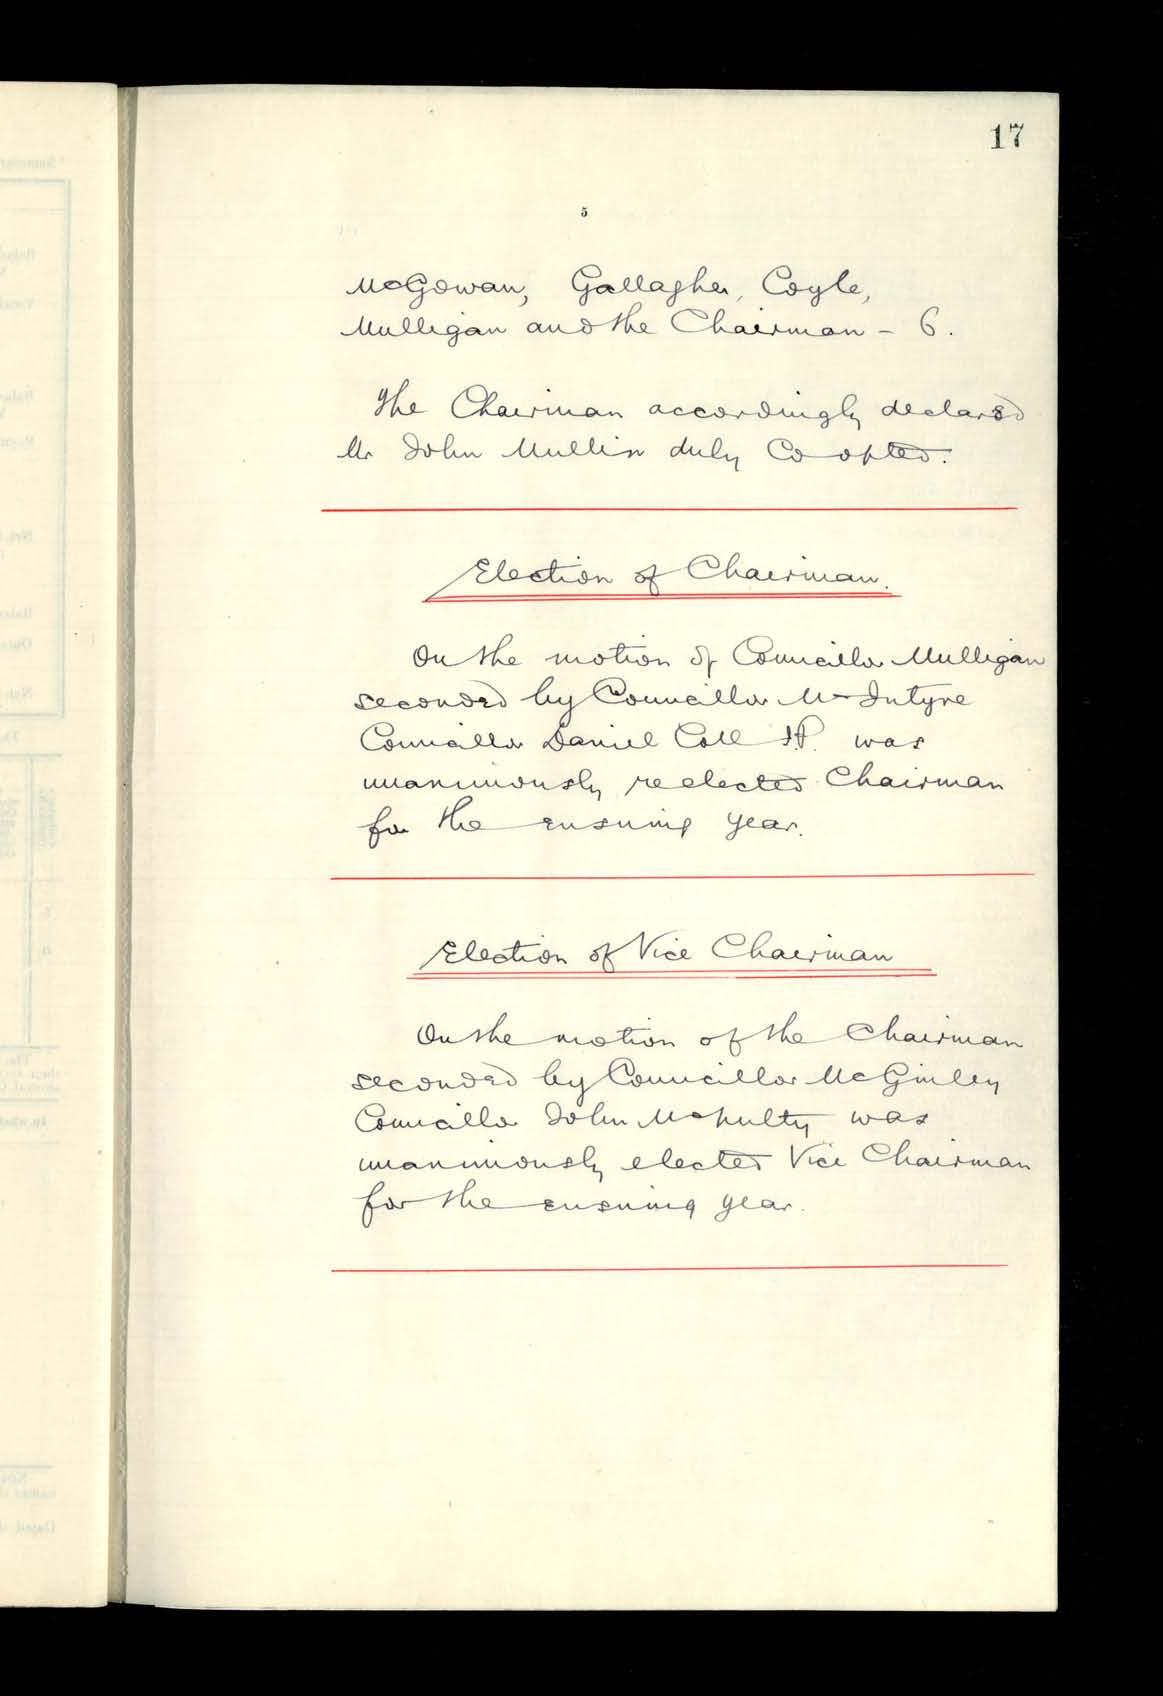 17
5
McGowan, Gallagher, Coyle,
Mulligan and the Chairman - 6.
The Chairman accordingly declared
Mr John Mullin duly Co opted.
Election of Chairman.
On the motion of Councillor Mulligan
seconded by Councillor McIntyre
Councillor Daniel Coll J.P. was
unanimously reelected Chairman
for the ensuing year.
Election of Vice Chairman
On the motion of the Chairman
seconded by Councillor McGinley
Councillor John McNulty was
unanimously elected Vice Chairman
for the ensuing year.